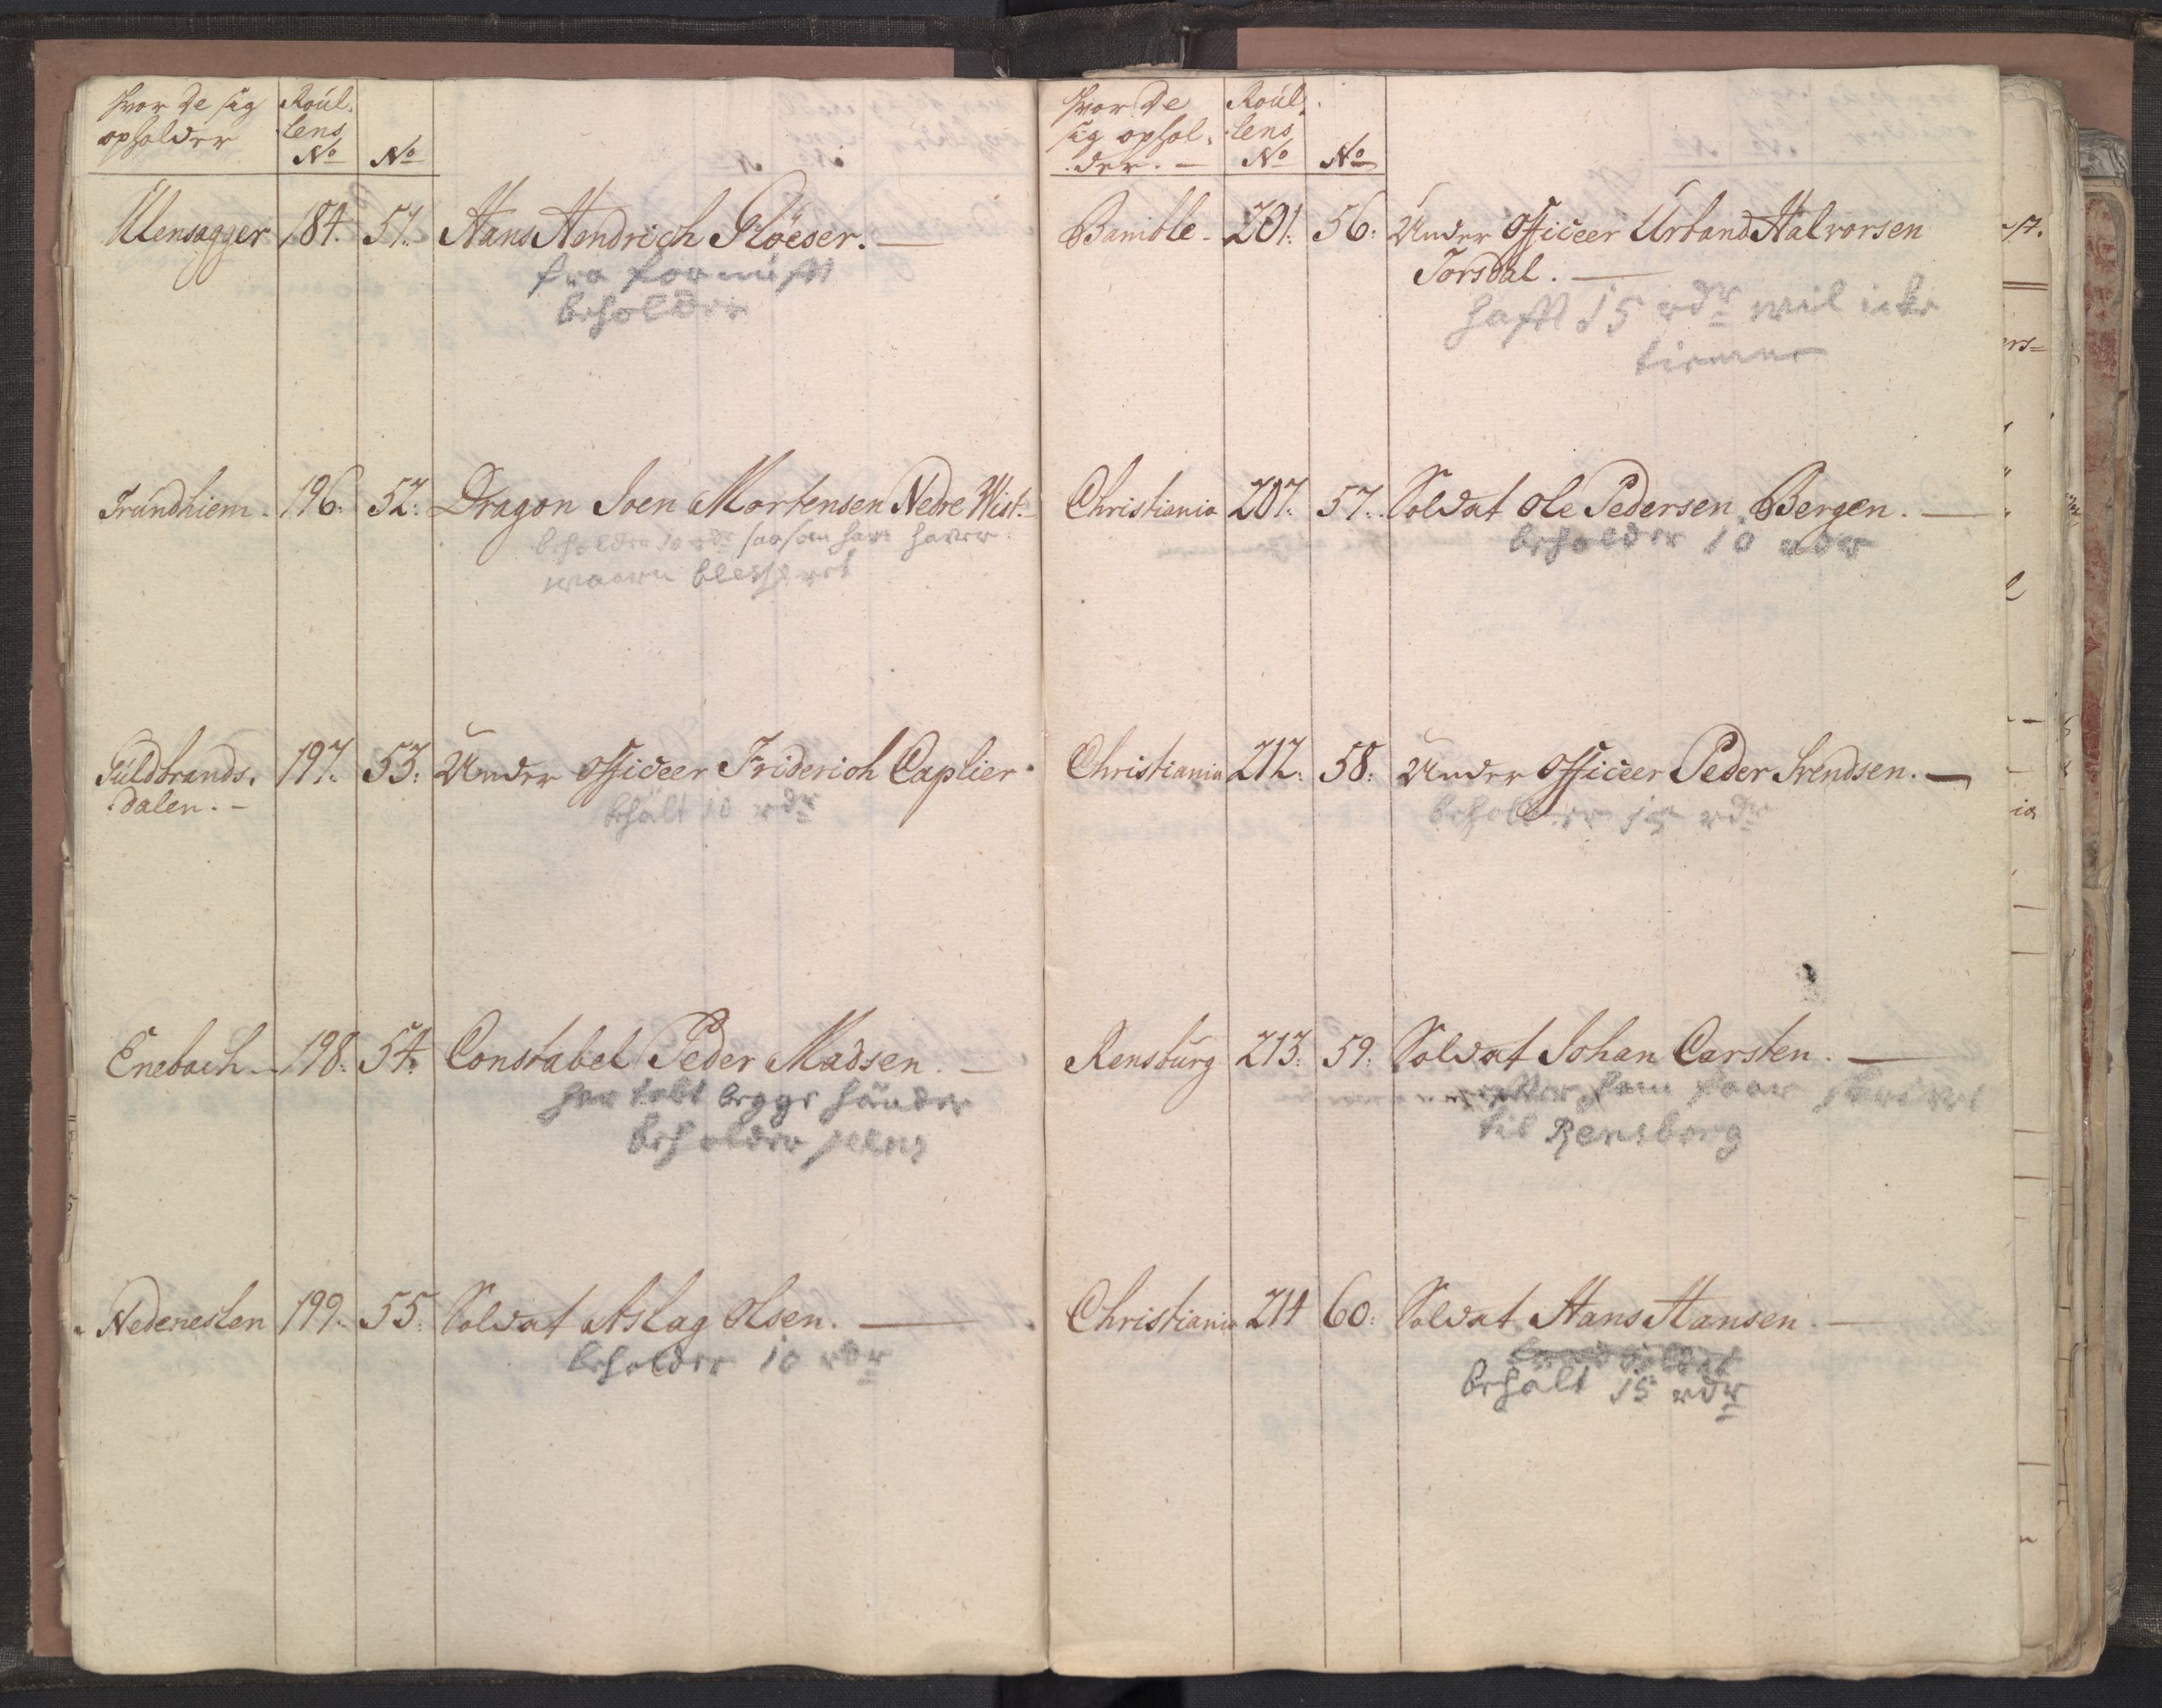 Hvor de sig Roul-
opholder lens
No No
Ulensagger 184. 51. Hans Hendrich Glöeser. —
fra
beholder
Trundhiem. 196: 52: Dragon Joen Mortensen Nedre Wist. —
beholder 10 rdr saasom hand haver
waaren blesseret
Guldbrands- 197. 53: Under Officeer Friderich Caplier.
dalen. —
behält 10 rdr
Enebach — 198: 54. Constabel Peder Madsen. —
har tabt begge händer
beholder
Nedeneslen 199. 55. Soldat Aslag Olsen. —
beholder 10 rdr
Hvor de Roul-
sig ophol- lens
der. — No No
Bamble — 201: 56: Under Officeer Urband Halvorsen
Torsdal. —
hafft 15 rdr vil icke
Christiania 207: 57. Soldat Ole Pedersen Bergen. —
beholder 10 rdr
Christiania 212: 58: Under Officeer Peder Svendsen. —
beholder 15 rdr
Rensburg 213: 59: Soldat Johan Carsten. —
til Rensborg
Christiania 214 60: Soldat Hans Hansen. —
behält 15 rdr